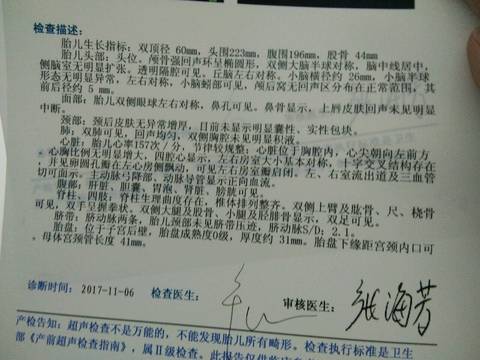 检查描述:
胎儿生长指标:双顶径 60mm,头围223mm,腹围196mm,股骨 44mm
胎儿头部:头位。颅骨强回声环呈椭圆形,双侧大脑半球对称,脑中线居中,
侧脑室无明显扩张。透明隔腔可见。丘脑左右对称。小脑横径约 26mm,小脑半球
形态无明显异常,左右对称,小脑蚓部可见,颅后窝无回声区分布在正常范围,其
前后径约 5 mm。
面部:胎儿双侧眼球左右对称,鼻孔可见。鼻骨显示,上唇皮肤回声未见明显
中断。
颈部:颈后皮肤无异常增厚,目前未显示明显囊性、实性包块。
肺:双肺可见,回声均匀,双侧胸腔未见明显积液。
心脏:胎儿心率157次/分,节律较规整;心脏位于胸腔内,心尖朝向左前方
,心胸比例无明显增大,四腔心显示,左右房室大小基本对称,十字交叉结构存在
,并见卵圆孔瓣在左心房侧飘动,可见左右房室瓣启闭。左、右室流出道及三血管
切可面示。主动脉弓降部、动脉导管显示正向血流。
腹部:肝脏、胆囊、胃泡、肾脏、膀胱可见。
脊柱、四肢:脊柱生理曲度存在,椎体排列整齐。双侧上臂及肱骨、尺、桡骨
可见,双手呈握拳状。双侧大腿及股骨、小腿及胫腓骨显示,双足可见。
脐带:脐动脉两条,胎儿颈部未见脐带压迹,脐动脉S/D:2.1。
胎盘:位于子宫后壁,胎盘成熟度0级,厚度约 31mm。胎盘下缘距宫颈内口可
。母体宫颈管长度 41mm。
诊断时间:2017-11-06 检查医生: 审核医生:张海芳
产检告知:超声检查不是万能的,不能发现胎儿所有畸形。检查执行标准是卫生
部《产前超声检查指南》,属Ⅱ级检查。此报告仅供临床